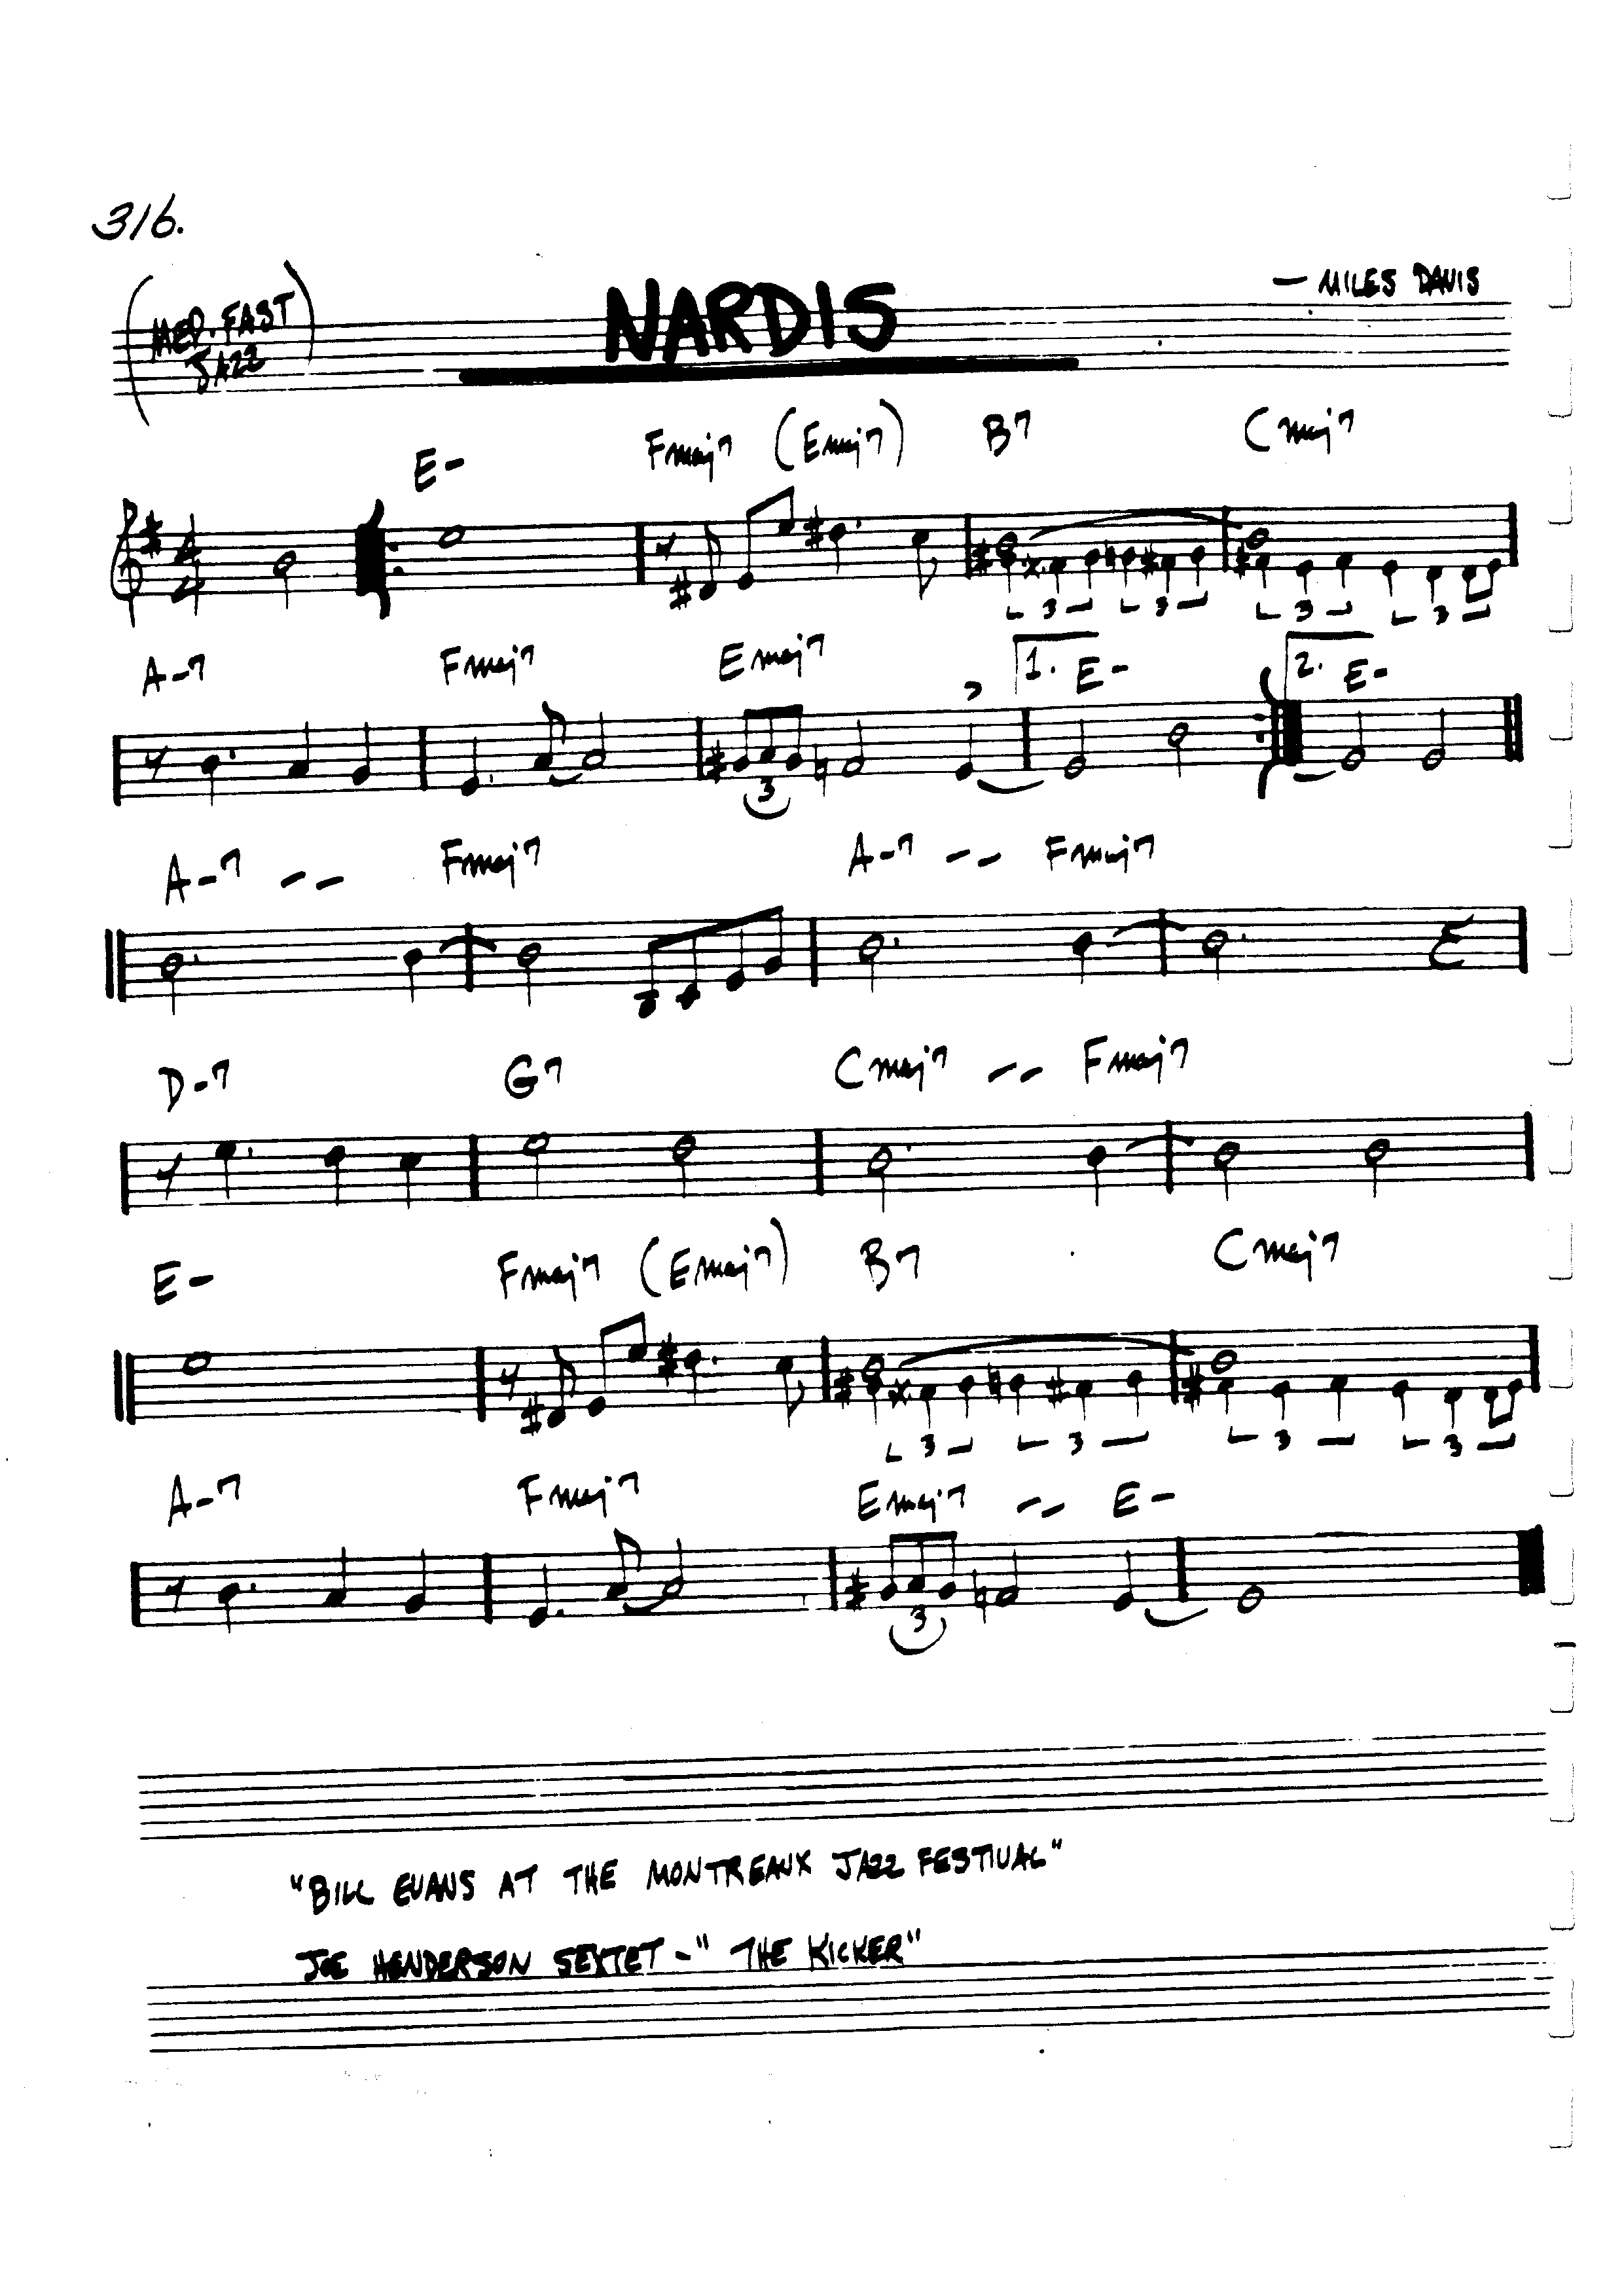 316.
(MED. FAST JAZZ)
NARDIS
— MILES DAVIS
E- Fmaj7 (Emaj7) B7 Cmaj7
3 3 3 3
A-7 Fmaj7 Emaj7 1. E- 2. E-
3
A-7 -- Fmaj7 A-7 -- Fmaj7
D-7 G7 Cmaj7 -- Fmaj7
E- Fmaj7 (Emaj7) B7 Cmaj7
3 3 3 3
A-7 Fmaj7 Emaj7 -- E-
3
"BILL EVANS AT THE MONTREAUX JAZZ FESTIVAL"
JOE HENDERSON SEXTET - "THE KICKER"